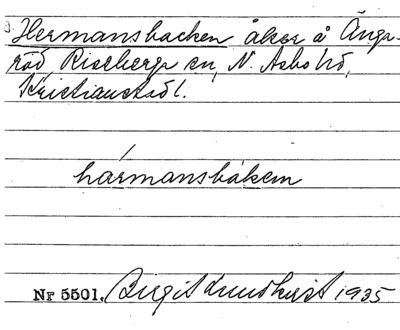 Hermansbacken åker å Änga-
röd, Riseberga sn, N. Åsbo hd,
Kristianst. l.
hármansbákem
Nr 5501. Birgit Lundkvist 1935